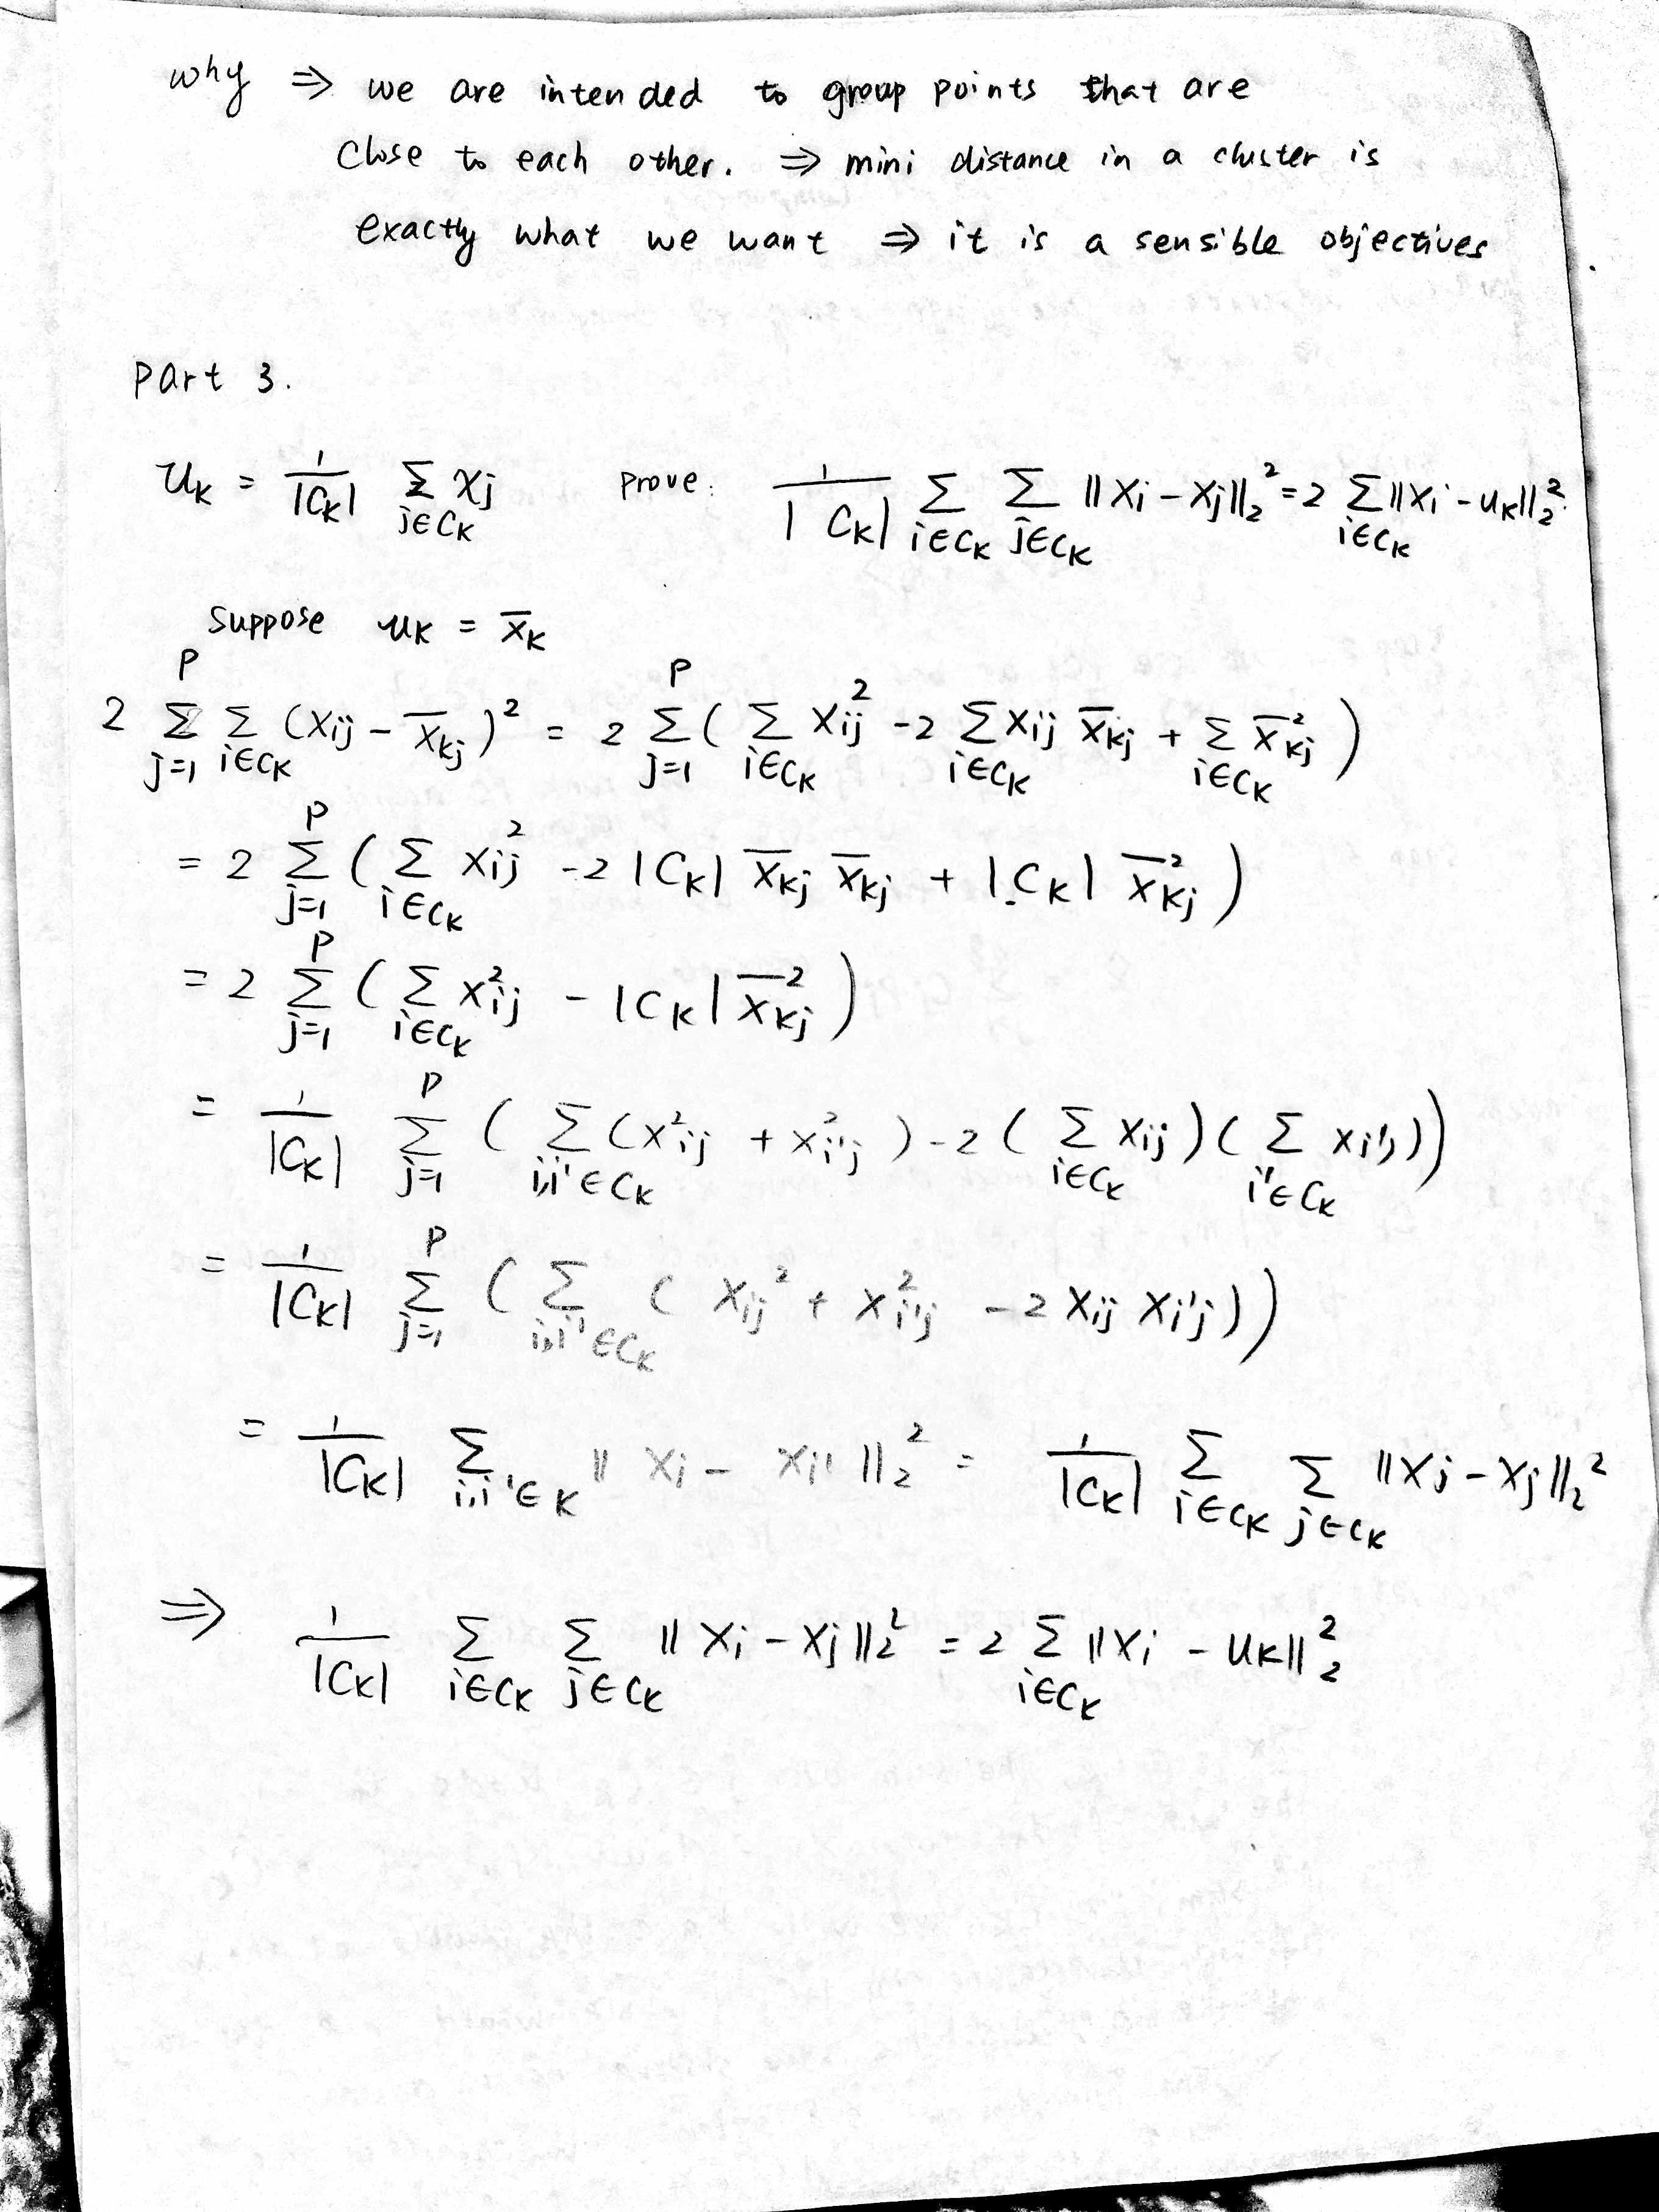 why ⇒ we are intended to group points that are
close to each other. ⇒ mini distance in a cluster is
exactly what we want ⇒ it is a sensible objectives
part 3.
u_K = 1/|C_K| Σ_{j∈C_K} x_j   prove: 1/|C_K| Σ_{i∈C_K} Σ_{j∈C_K} ||x_i - x_j||_2^2 = 2 Σ_{i∈C_K} ||x_i - u_K||_2^2.
suppose u_K = x̄_K
2 Σ_{j=1}^P Σ_{i∈C_K} (x_ij - x̄_kj)^2 = 2 Σ_{j=1}^P ( Σ_{i∈C_K} x_ij^2 - 2 Σ_{i∈C_K} x_ij x̄_kj + Σ_{i∈C_K} x̄_kj^2 )
= 2 Σ_{j=1}^P ( Σ_{i∈C_K} x_ij^2 - 2 |C_K| x̄_kj x̄_kj + |C_K| x̄_kj^2 )
= 2 Σ_{j=1}^P ( Σ_{i∈C_K} x_ij^2 - |C_K| x̄_kj^2 )
= 1/|C_K| Σ_{j=1}^P ( Σ_{i,i'∈C_K} (x_ij^2 + x_i'j^2) - 2 ( Σ_{i∈C_K} x_ij ) ( Σ_{i'∈C_K} x_i'j ))
= 1/|C_K| Σ_{j=1}^P ( Σ_{i,i'∈C_K} ( x_ij^2 + x_i'j^2 - 2 x_ij x_i'j ))
= 1/|C_K| Σ_{i,i'∈K} || x_i - x_i' ||_2^2 = 1/|C_K| Σ_{i∈C_K} Σ_{j∈C_K} ||x_j - x_j||_2^2
⇒ 1/|C_K| Σ_{i∈C_K} Σ_{j∈C_K} || x_i - x_j ||_2^2 = 2 Σ_{i∈C_K} ||x_i - u_K||_2^2